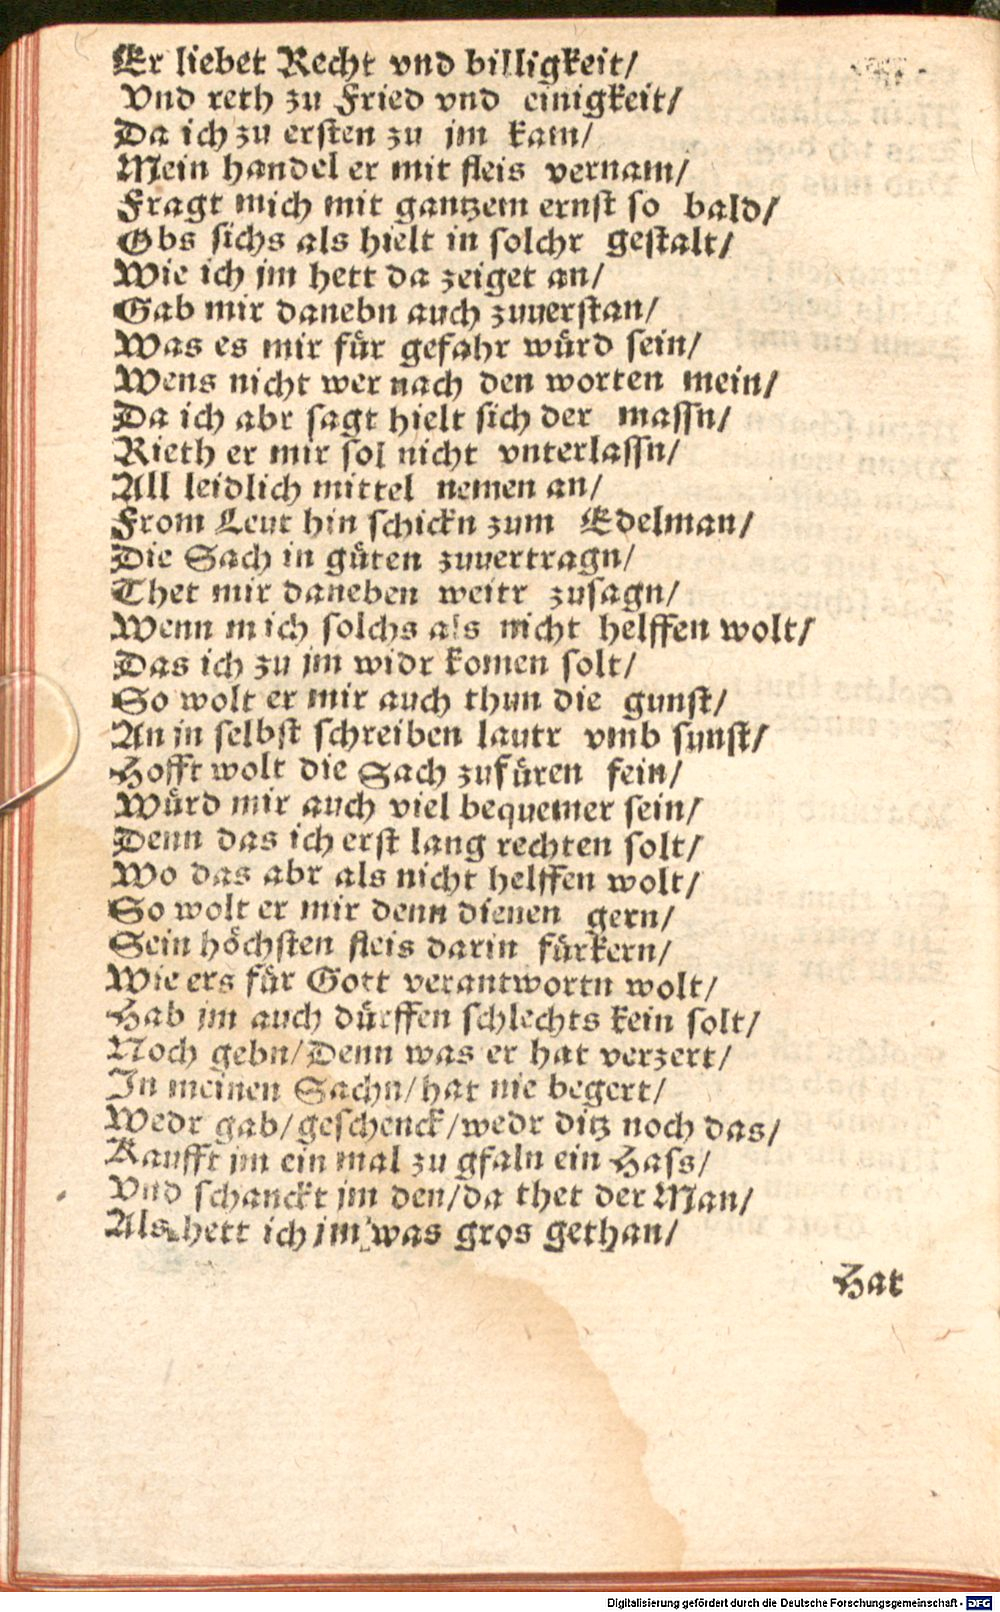 Er liebet Recht vnd billigkeit/
Vnd reth zu Fried vnd einigkeit/
Da ich zu ersten zu jm kam/
Mein handel er mit fleis vernam/
Fragt mich mit gantzem ernst so bald/
Obs sichs als hielt in solchr gestalt/
Wie ich jm hett da zeiget an/
Gab mir danebn auch zuuerstan/
Was es mir für gefahr würd sein/
Wens nicht wer nach den worten mein/
Da ich abr sagt hielt sich der massn/
Rieth er mir sol nicht vnterlassn/
All leidlich mittel nemen an/
From Leut hin schickn zum Edelman/
Die Sach in güten zuuertragn/
Thet mir daneben weitr zusagn/
Wenn mich solchs als nicht helffen wolt/
Das ich zu jm widr komen solt/
So wolt er mir auch thun die gunst/
An jn selbst schreiben lautr vmb sunst/
Hofft wolt die Sach zufüren fein/
Würd mir auch viel bequemer sein/
Denn das ich erst lang rechten solt/
Wo das abr als nicht helffen wolt/
So wolt er mir denn dienen gern/
Sein höchsten fleis darin fürkern/
Wie ers für Gott verantwortn wolt/
Hab jm auch dürffen schlechts kein solt/
Noch gebn/Denn was er hat verzert/
In meinen Sachn/hat nie begert/
Wedr gab/geschenck/wedr ditz noch das/
Kaufft jm ein mal zu gfaln ein Hass/
Vnd schanckt jm den/da thet der Man/
Als hett ich jm was gros gethan/
Hat
Digitalisierung gefördert durch die Deutsche Forschungsgemeinschaft - DFG